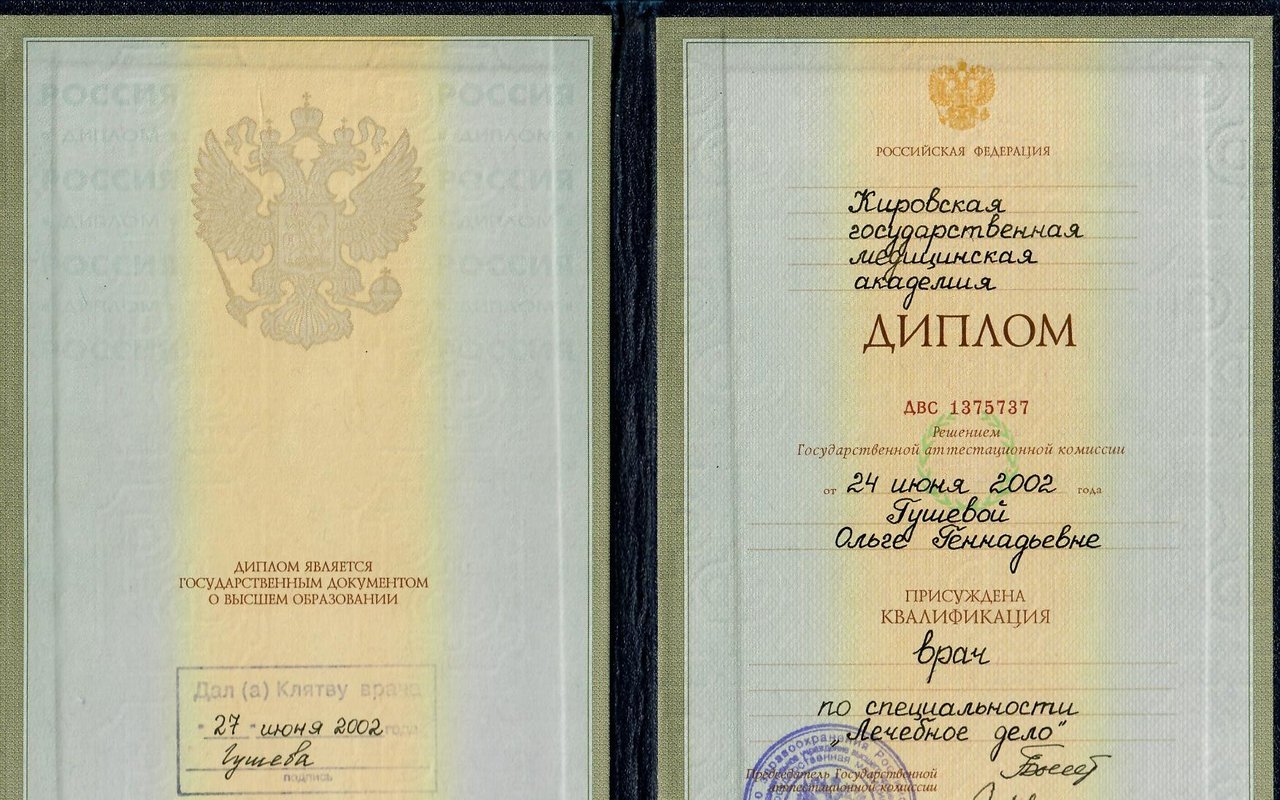 РОССИЯ РОССИЯ
• ДИПЛОМ • • ДИПЛОМ •
РОССИЯ РОССИЯ
• ДИПЛОМ • • ДИПЛОМ •
РОССИЯ РОССИЯ
• ДИПЛОМ • • ДИПЛОМ •
РОССИЯ РОССИЯ
ДИПЛОМ ЯВЛЯЕТСЯ
ГОСУДАРСТВЕННЫМ ДОКУМЕНТОМ
О ВЫСШЕМ ОБРАЗОВАНИИ
Дал (а) Клятву врача
"27" июня 2002 года
Гушева
подпись
РОССИЙСКАЯ ФЕДЕРАЦИЯ
Кировская
государственная
медицинская
академия
ДИПЛОМ
ДВС 1375737
Решением
Государственной аттестационной комиссии
от 24 июня 2002 года
Гушевой
Ольге Геннадьевне
ПРИСУЖДЕНА
КВАЛИФИКАЦИЯ
врач
по специальности
"Лечебное дело"
Председатель Государственной
аттестационной комиссии